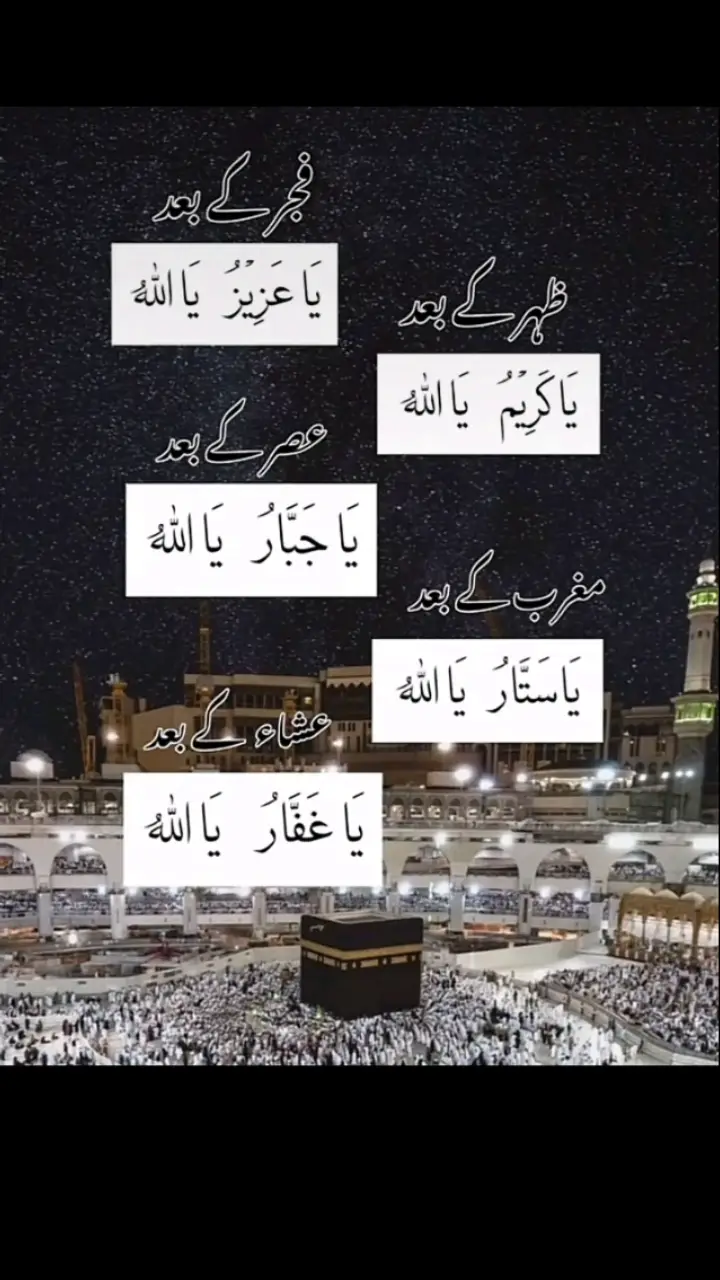 فجر کے بعد
یَا عَزِیْزُ یَا اللهُ
ظہر کے بعد
یَا کَرِیْمُ یَا اللهُ
عصر کے بعد
یَا جَبَّارُ یَا اللهُ
مغرب کے بعد
یَا سَتَّارُ یَا اللهُ
عشاء کے بعد
یَا غَفَّارُ یَا اللهُ